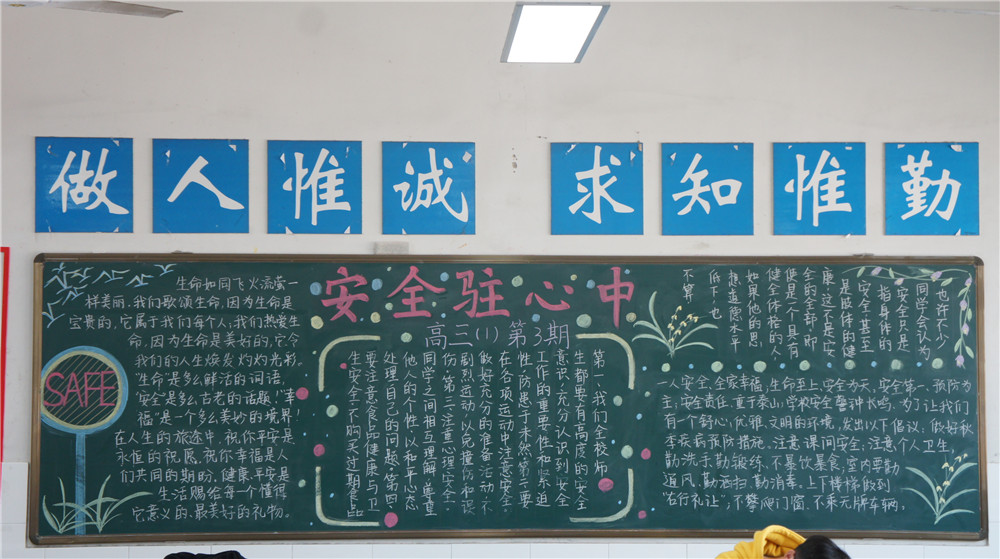 做人惟诚 求知惟勤
安全驻心中
高三(1)第3期
生命如同飞火流萤一
样美丽,我们歌颂生命,因为生命是
宝贵的,它属于我们每个人;我们热爱生
命,因为生命是美好的,它令
我们的人生焕发灼灼光彩。
生命是多么鲜活的词语,
安全是多么古老的话题!“幸
福”是一个多么美妙的境界!
在人生的旅途中,祝你平安是
永恒的祝愿,祝你幸福是人
们共同的期盼,健康、平安是
生活赐给每一个懂得
它意义的、最美好的礼物。
SAFE
第一、我们全校师
生都要有高度的安全
意识,充分认识到安全
工作的重要性和紧迫
性,防患于未然。第二、要
在各项运动中注意安全,
做好充分的准备活动,不
剧烈运动,以免撞伤和误
伤。第三、注意心理安全。
同学之间相互理解、尊重
他人的个性,以和平心态
处理自己的问题。第四、
要注意食品健康与卫
生安全,不购买过期食品
也许不少
同学会认为
安全只是
指身体的
安全,甚至
是肢体的健
康,这不是安
全的全部,即
便是一个具有
健全体格的人
如果他的思
想道德水平
低下,也
不算
一人安全,全家幸福;生命至上,安全为天;安全第一,预防为
主;安全责任,重于泰山;学校安全警钟长鸣。为了让我们
有一个舒心、优雅、文明的环境,发出以下倡议:做好秋
季疾病预防措施,注意课间安全;注意个人卫生,
勤洗手、勤锻炼,不暴饮暴食,室内要勤
通风、勤洒扫、勤消毒,上下楼梯做到
“右行礼让”,不攀爬门窗,不乘无牌车辆;